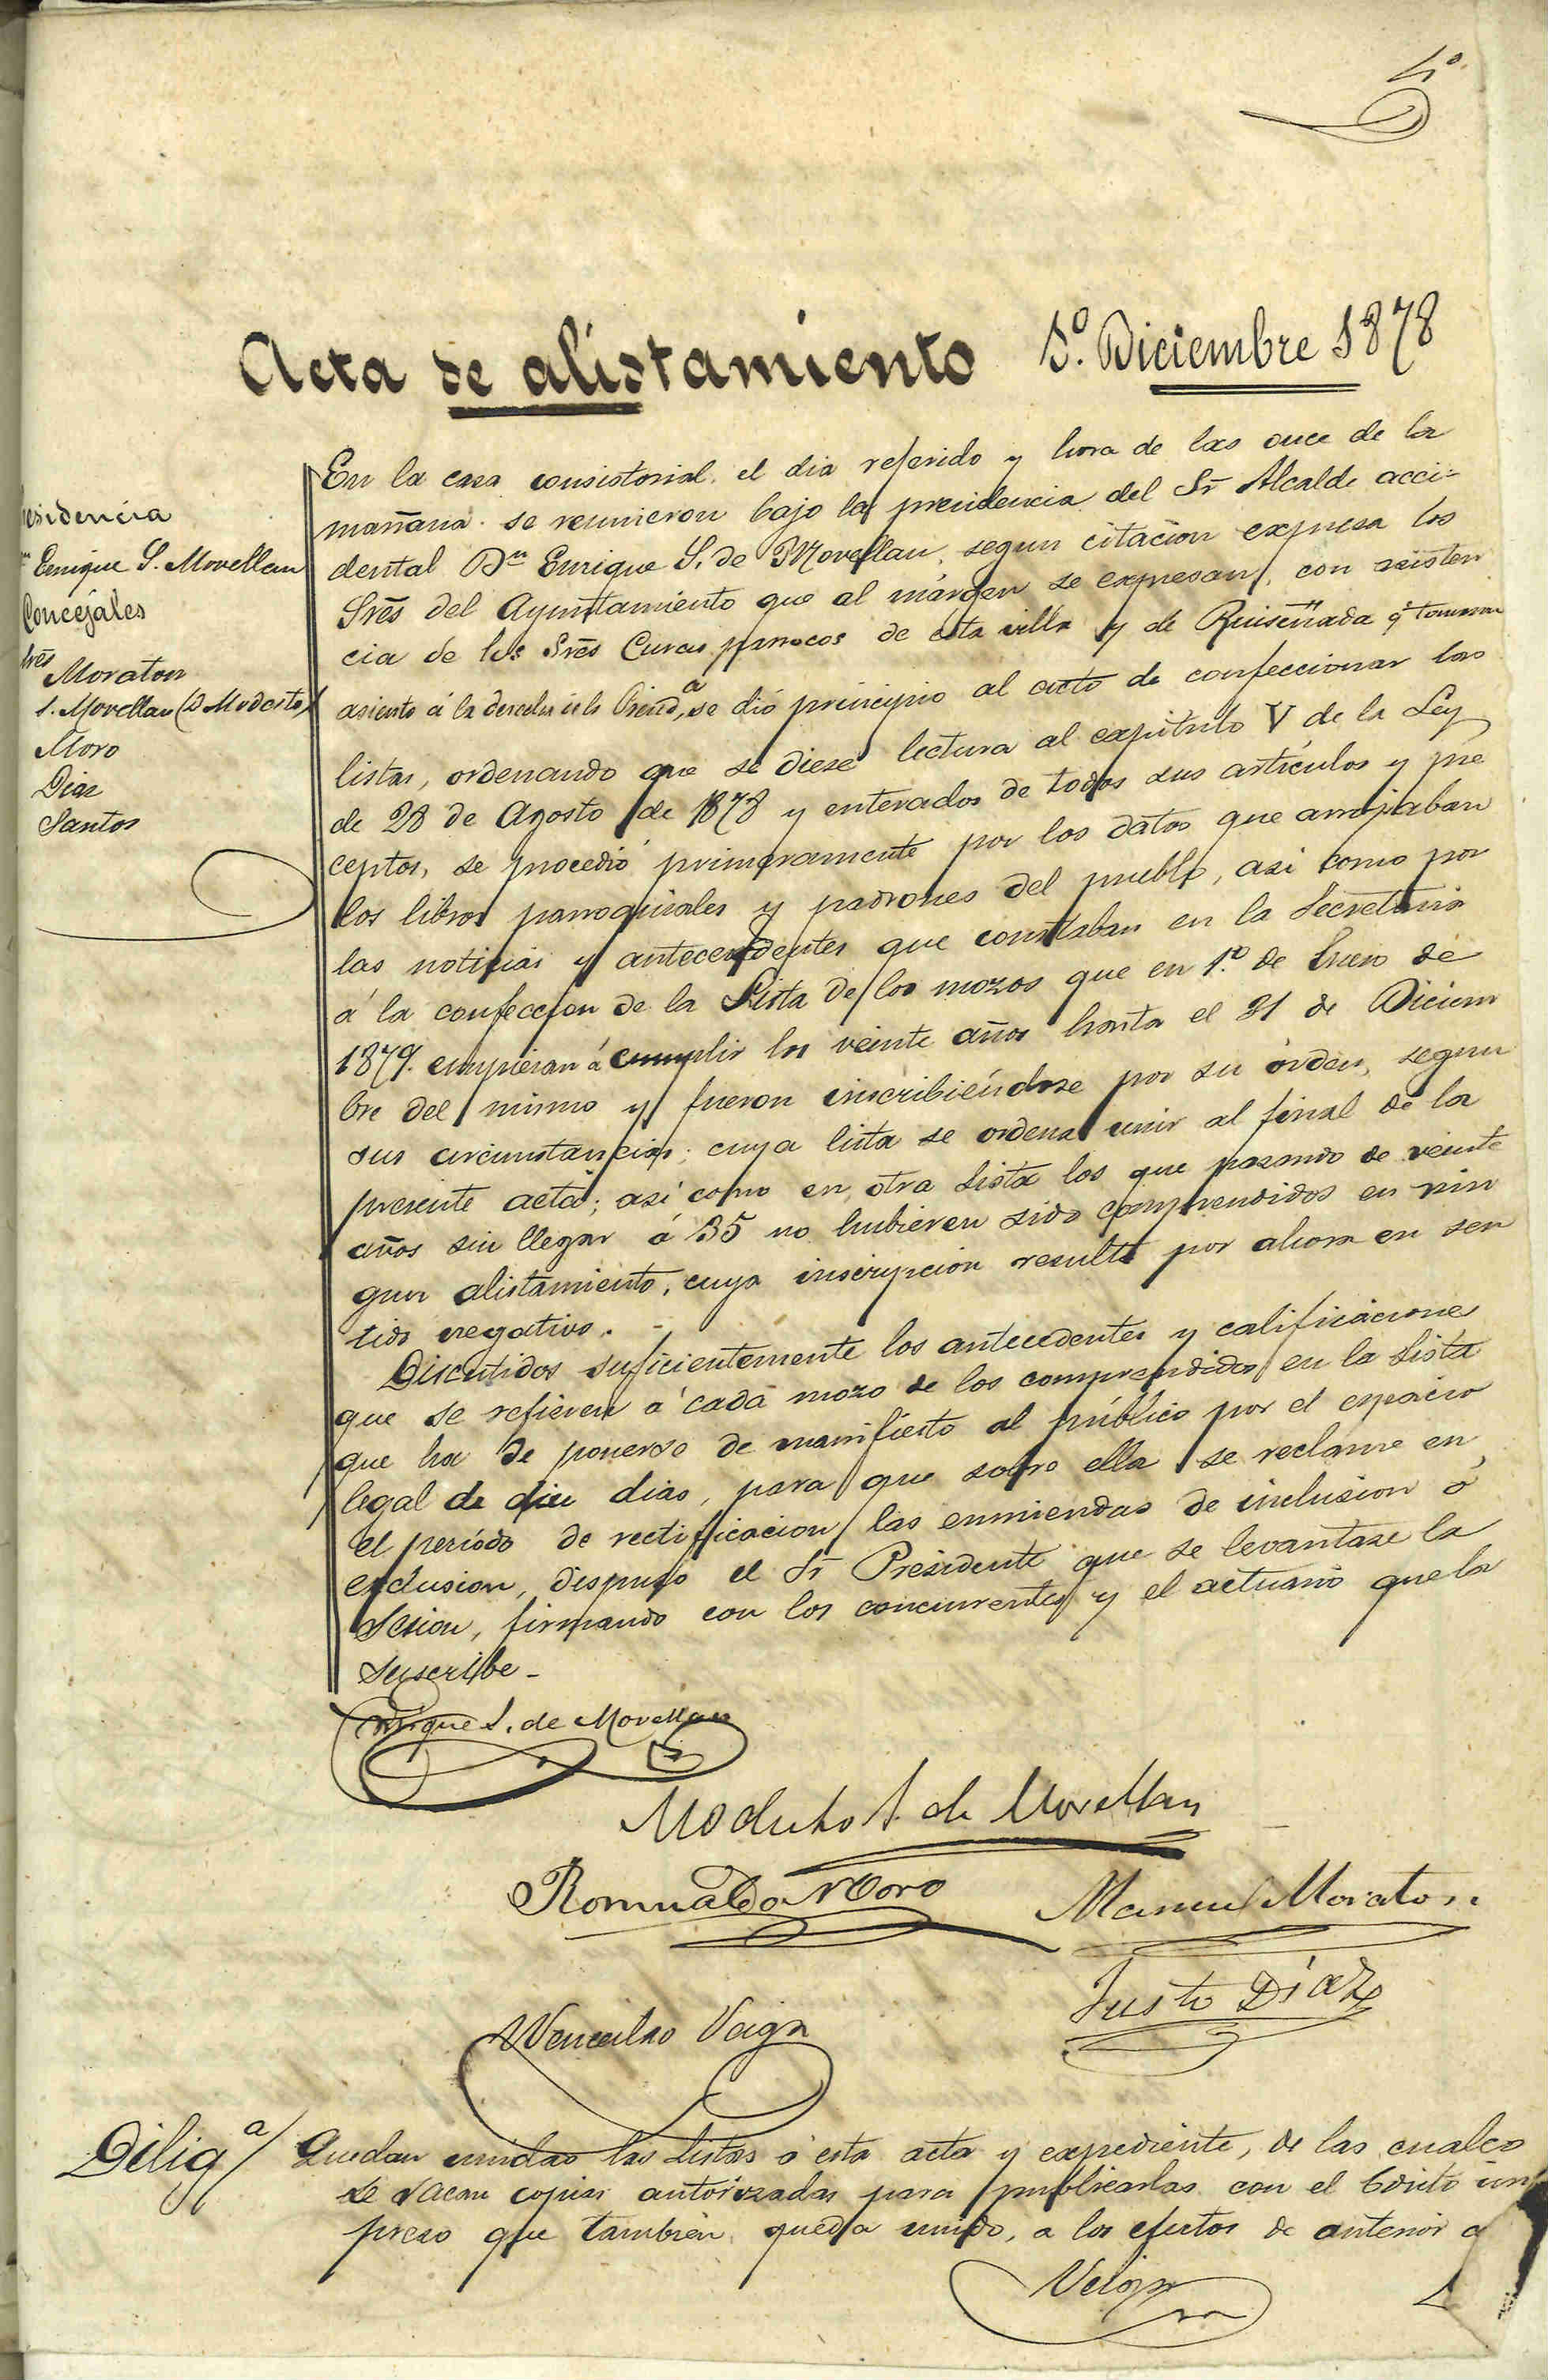 4º
Acta de alistamiento 1º. Diciembre 1878
esidencia
Enrique S. Movellan
Concejales
Sres
Moraton
S. Movellan (D Modesto)
Moro
Diaz
Santos
En la casa consistorial, el dia referido y hora de las once de la
mañana. se reunieron bajo la presidencia del Sr Alcalde acci-
dental Dn Enrique S. de Movellan, segun citacion expresa los
Sres del Ayuntamiento que al márgen se expresan, con asisten
cia de los Sres Curas párrocos de esta villa y de Ruiseñada q tomaron
asiento á la derecha de la Presida, se dió principio al acto de confeccionar las
listas, ordenando que se diese lectura al capitulo V de la Ley
de 28 de Agosto de 1878 y enterados de todos sus artículos y pre
ceptos, se procedió primeramente por los datos que arrojaban
los libros parroquiales y padrones del pueblo, asi como por
las noticias y antecendentes que constaban en la Secretaria
á la confeccion de la Lista de los mozos que en 1.º de Enero de
1879. empiezan á cumplir los veinte años hasta el 31 de Diciem
bre del mismo y fueron inscribiéndose por su órden, segun
sus circunstancias; cuya lista se ordena unir al final de la
presente acta; asi como en otra Lista los que pasando de veinte
años sin llegar á 35 no hubieren sido comprendidos en nin
gun alistamiento, cuya inscripcion resulta por ahora en sen
tido negativo. -
Discutidos suficientemente los antecedentes y calificaciones
que se refieren á cada mozo de los comprendidos en la Lista
que ha de ponerse de manifiesto al público por el espacio
legal de diez dias, para que sobre ella se reclame en
el período de rectificacion las enmiendas de inclusion ó
exclusion, dispuso el Sr Presidente que se levantase la
Sesion, firmando con los concurrentes y el actuario que la
suscribe -
Enrique S. de Movellan
Modesto S. de Movellan
Romualdo Moro
Manuel Moraton.
Justo Díaz
Wenceslao Veiga
Diliga/ Quedan unidas las Listas á esta acta y expediente, de las cuales
se sacan copias autorizadas para publicarlas con el Edicto im
preso que tambien queda unido, a los efectos de anterior a
Veiga